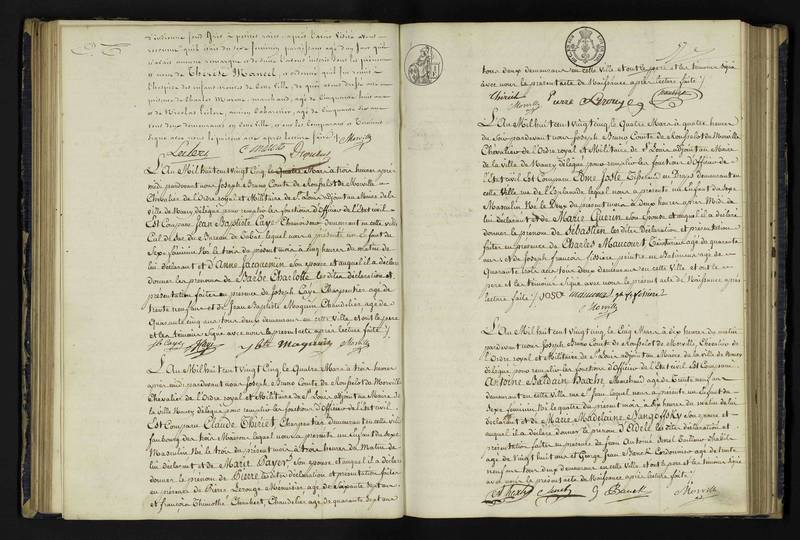 d'indienne fond Gris à petites raies, après l'avoir visité avons
reconnu qu'il était du sexe féminin, paraissant âgé d'un jour que
n'avais aucune marque et de suite l'avons inscrit sous les prénoms
et nom de Thérèse Mancel, et ordonné qu'il fut remis à
l'hospice des enfans trouvés de cette ville, de quoi avons dressé en
présence de Charles Morone, marchand, âgé de Cinquante huit ans
et de Nicolas Leclerc, ancien Cabaretier, âgé de Cinquante six ans
tous deux demeurans en cette ville, et ont les Comparans et témoins
signé avec nous le présent acte après lecture faite /
Leclerc
Morville
L'An Mil huit cent Vingt Cinq le Quatre Mars à trois heures après
midi pardevant nous Joseph Bruno Comte de Rouffelot de Morville
Chevalier de l'Ordre royal et Militaire de St Louis adjoint au Maire de la
ville de Nancy délégué pour remplir les fonctions d'Officier de l'état civil
Est Comparu Jean Baptiste Caye demeurant en cette ville
Cul de Sac du Bureau de tabac lequel nous a présenté un Enfant du
Sexe féminin Né le trois du présent mois à cinq heures du matin de
lui déclarant et d'Anne Jacquemin son épouse et auquel il a déclaré
donner les prénoms de Barbe Charlotte les dites déclaration et
présentation faites en présence de Joseph Caye Charpentier âgé de
trente neuf ans et de Jean Baptiste Moguin Chandelier âgé de
Quarante cinq ans tous deux demeurans en cette ville et ont le père
et les témoins signé avec nous le présent acte après lecture faite /
Morville
L'An Mil huit cent Vingt Cinq le Quatre Mars à trois heures
après midi pardevant nous Joseph Bruno Comte de Rouffelot de Morville
Chevalier de l'Ordre royal et Militaire de St Louis adjoint au Maire de
la ville Nancy délégué pour remplir les fonctions d'Officier de l'état civil
Est Comparu Claude Thiriet Charpentier demeurant en cette ville
faubourg des trois Maisons lequel nous a présenté un Enfant du Sexe
Masculin Né le trois du présent mois à trois heures du Matin de
lui déclarant et de Marie Bayer son épouse et auquel il a déclaré
donner le prénom de Pierre les dites déclaration et présentation faites
en présence de Pierre Lerouge Menuisier âgé de soixante sept ans
et françois Thimothé Chandelier âgé de quarante sept ans
tous deux demeurans en cette Ville et ont le père et les témoins signé
avec nous le présent acte de Naissance après lecture faite /
Thiriet
Morville
Pierre Lerouge
L'An Mil huit cent vingt cinq le Quatre Mars à quatre heures
du soir pardevant nous Joseph Bruno Comte de Rouffelot de Morville
Chevalier de l'Ordre royal et Militaire de St Louis adjoint au Maire
de la Ville de Nancy délégué pour remplir les fonctions d'Officier de
l'état civil Est Comparu Eome Josse demeurant en
cette Ville rue de l'Esplanade lequel nous a présenté un Enfant du Sexe
Masculin Né le Deux du présent mois à deux heures après Midi de
lui déclarant et de Marie Guerin son épouse et auquel il a déclaré
donner le prénom de Sébastien les dites déclaration et présentation
faites en présence de Charles Maucourt âgé de quarante
ans et de Joseph françois peintre en Batimens âgé de
Quarante trois ans tous deux demeurans en cette Ville et ont le
père et les témoins signé avec nous le présent acte de Naissance après
lecture faite /
Morville
L'An Mil huit cent vingt cinq le Cinq Mars à dix heures du matin
pardevant nous Joseph Bruno Comte de Rouffelot de Morville, Chevalier de
l'Ordre royal et Militaire de St Louis adjoint au Maire de la ville de Nancy
délégué pour remplir les fonctions d'Officier de l'état civil Est Comparu
Antoine Baldain âgé de trente neuf ans
demeurant en cette Ville rue St Jean lequel nous a présenté un Enfant du
Sexe féminin Né le quatre du présent mois à dix heures du matin de lui
déclarant et de Marie Madelaine Sangossky son épouse et
auquel il a déclaré donner le prénom d'Adèle les dites déclaration et
présentation faites en présence de Jean Antoine
âgé de vingt huit ans et George Jean Cordonnier âgé de trente
neuf ans tous deux demeurans en cette Ville et ont le père et les témoins signé
avec nous le présent acte de Naissance après lecture faite /
Morville